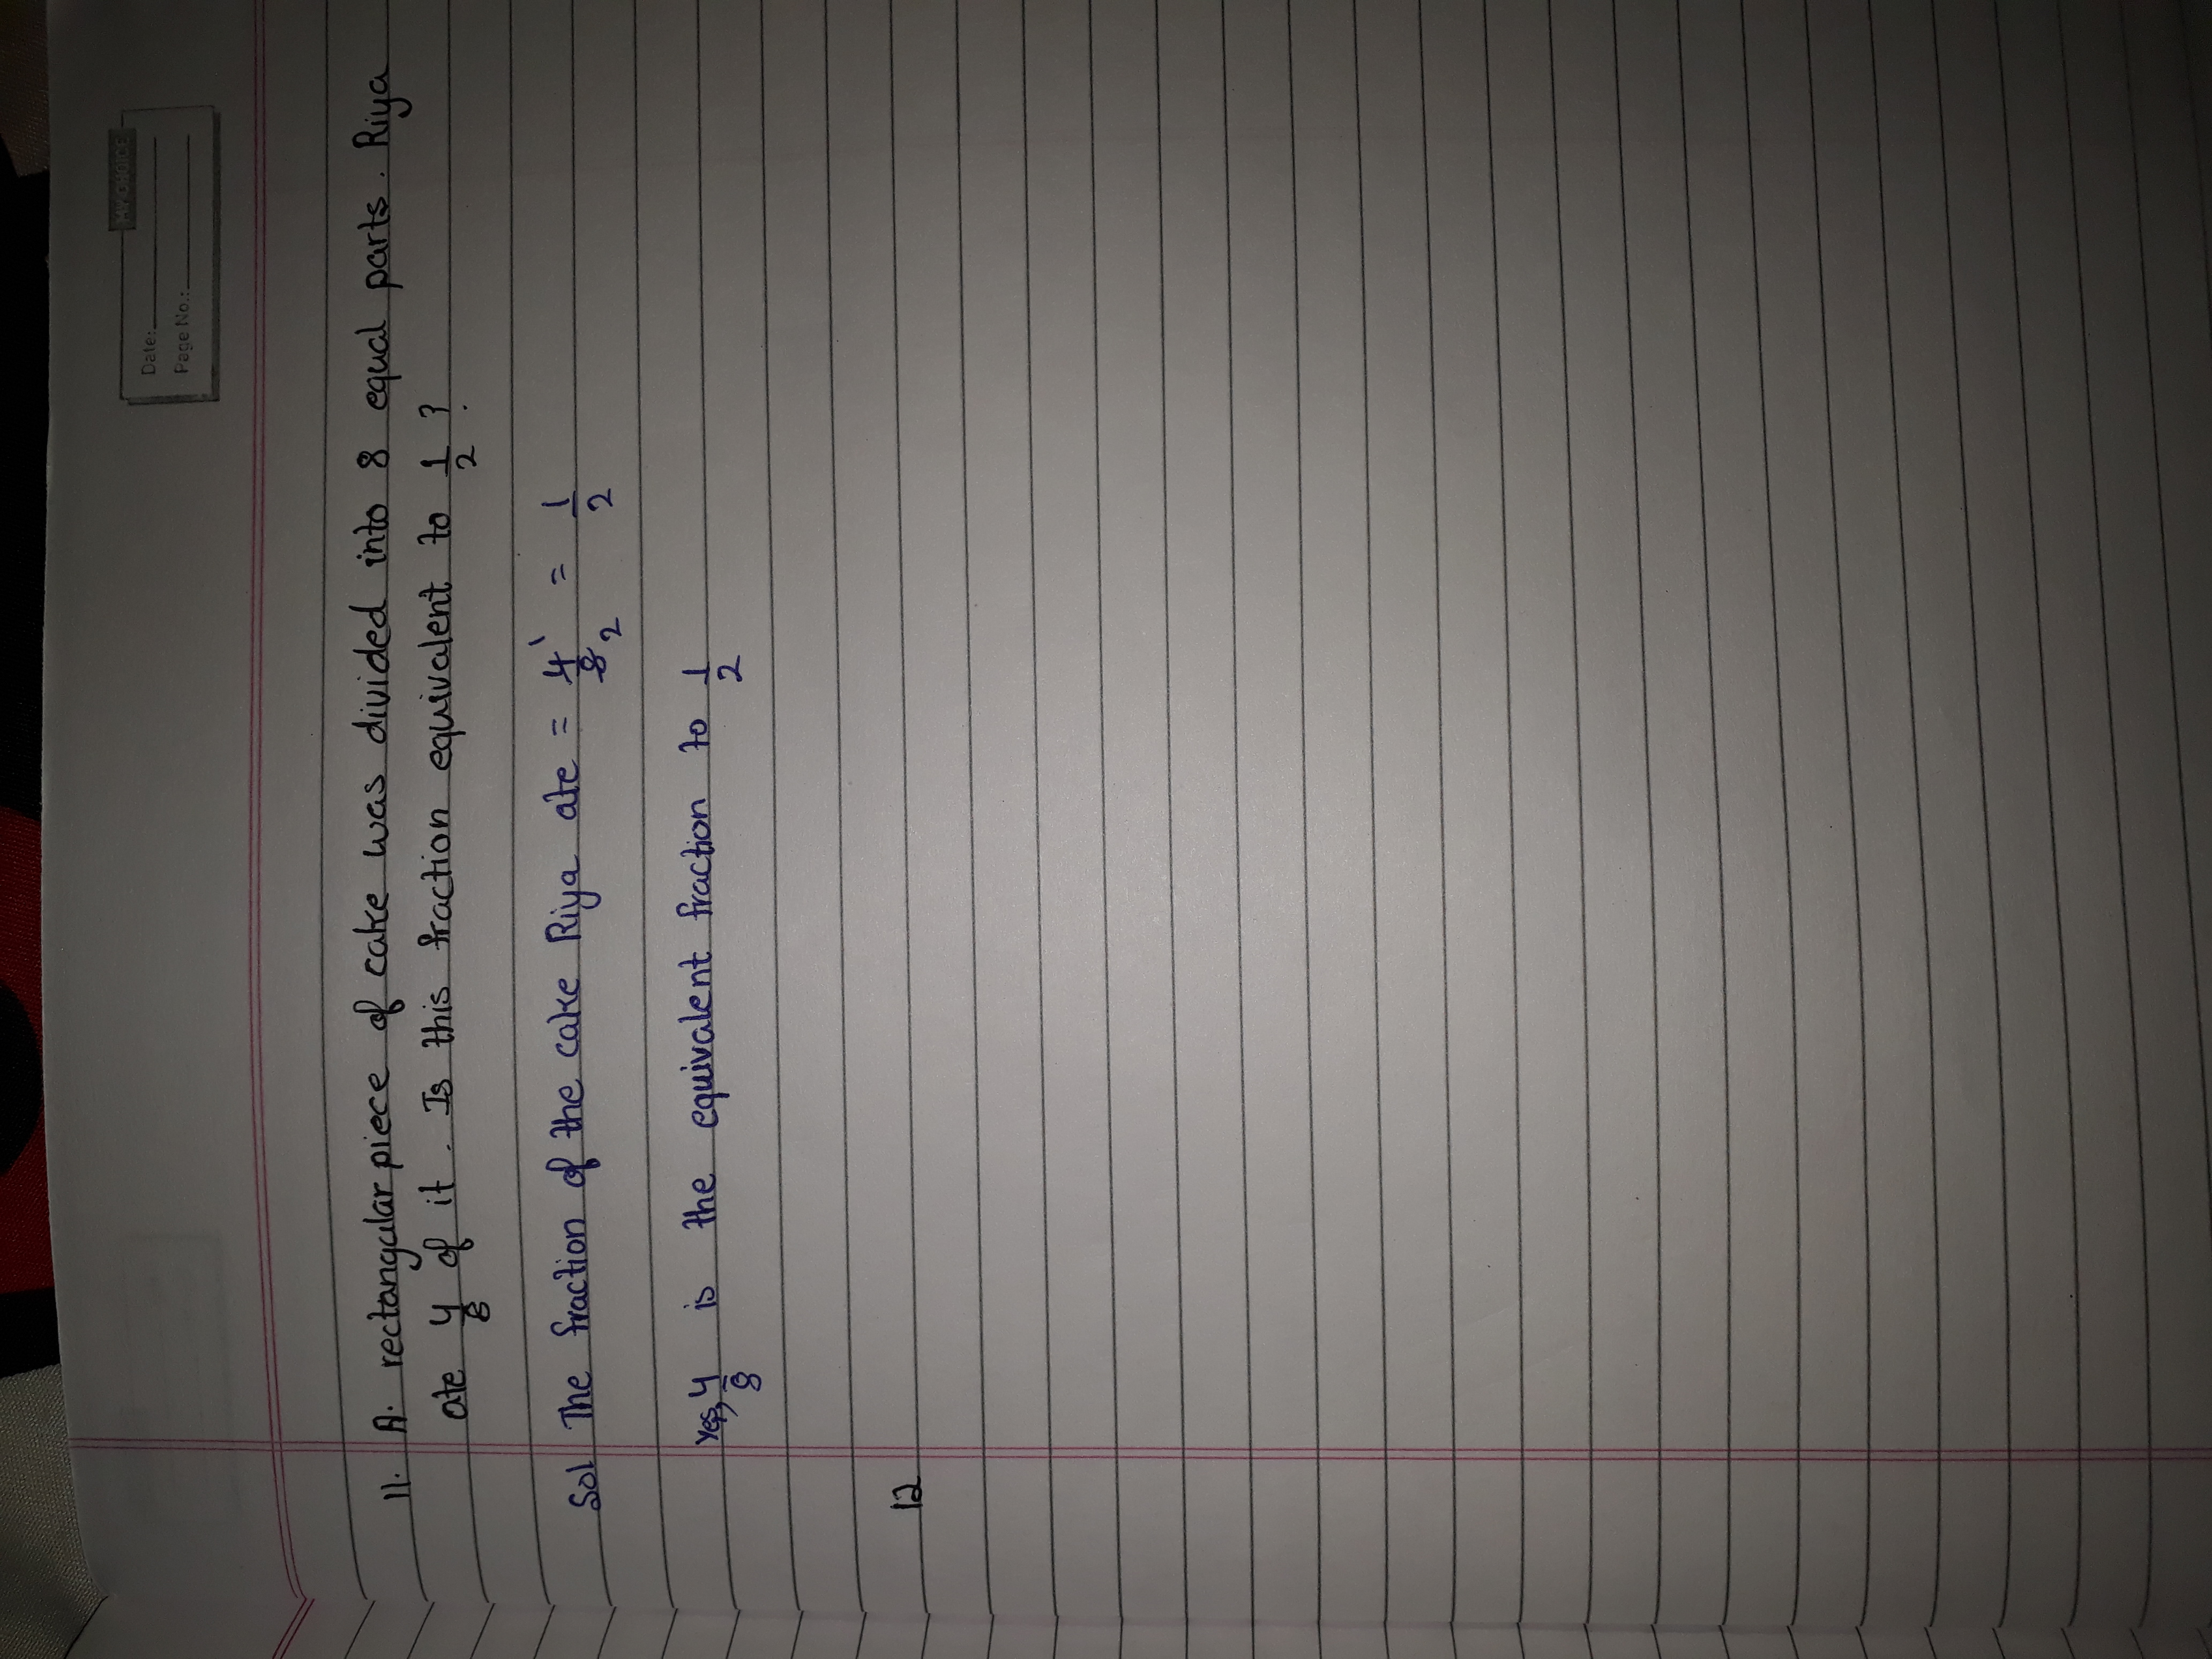 MY CHOICE
Date:
Page No.:
11. A. rectangular piece of cake was divided into 8 equal parts. Riya
ate 4/8 of it. Is this fraction equivalent to 1/2?
Sol The fraction of the cake Riya ate = 4/8 1 2 = 1/2
Yes, 4/8 is the equivalent fraction to 1/2
12